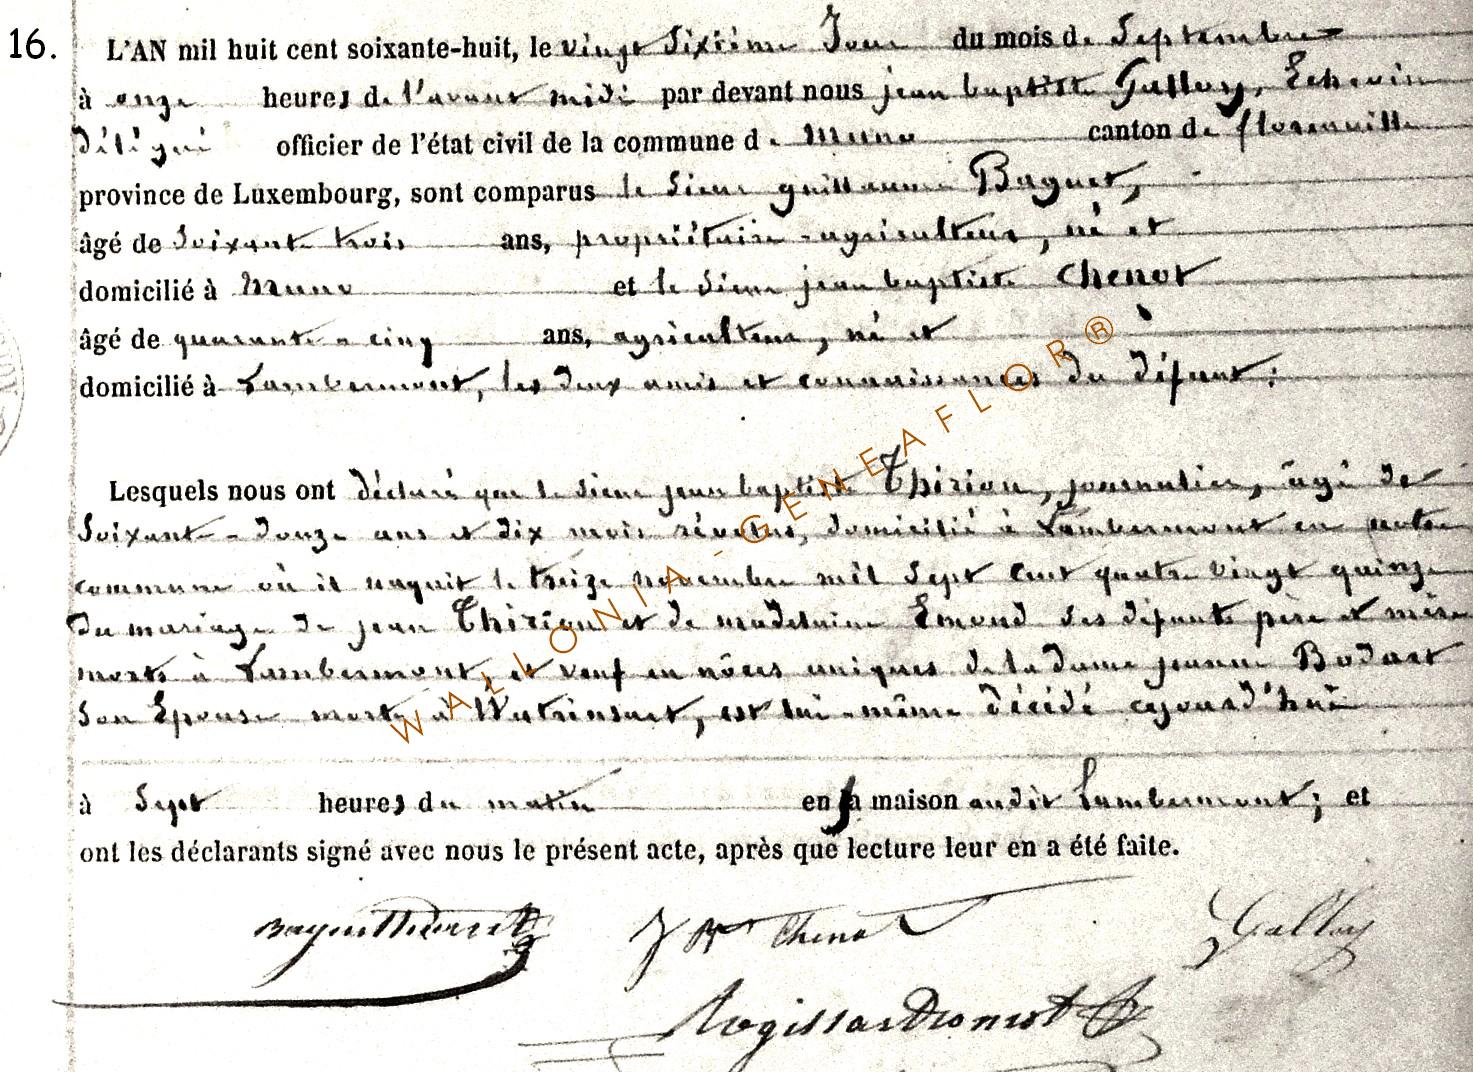 16.
L'AN mil huit cent soixante-huit, le vingt Sixième Jour du mois de Septembre
à onze heures de l'avant midi par devant nous jean baptiste Galloy, Echevin
délégué officier de l'état civil de la commune de Muno canton de florenville
province de Luxembourg, sont comparus le Sieur guillaume Baguet,
âgé de Soixante trois ans, propriétaire-agriculteur, né et
domicilié à Muno et le Sieur jean baptiste Chenot
âgé de quarante-cinq ans, agriculteur, né et
domicilié à Lambermont, les deux amis et connaissances du défunt:
Lesquels nous ont déclaré que le Sieur jean baptiste Thirion, journalier, âgé de
Soixante-douze ans et dix mois révolus, domicilié à Lambermont en notre
commune où il naquit le treize novembre mil Sept Cent quatre vingt quinze
du mariage de jean Thirion et de madelaine Emond Ses défunts père et mère
morts à Lambermont, et veuf en nôces uniques de la dame jeanne Bodart
Son Epouse morte à Watrinsart, est lui-même décédé cejourd'hui
à Sept heures du matin en sa maison audit Lambermont; et
ont les déclarants signé avec nous le présent acte, après que lecture leur en a été faite.
J Bte Chenot Galloy
WALLONIA-GENEAFLOR®